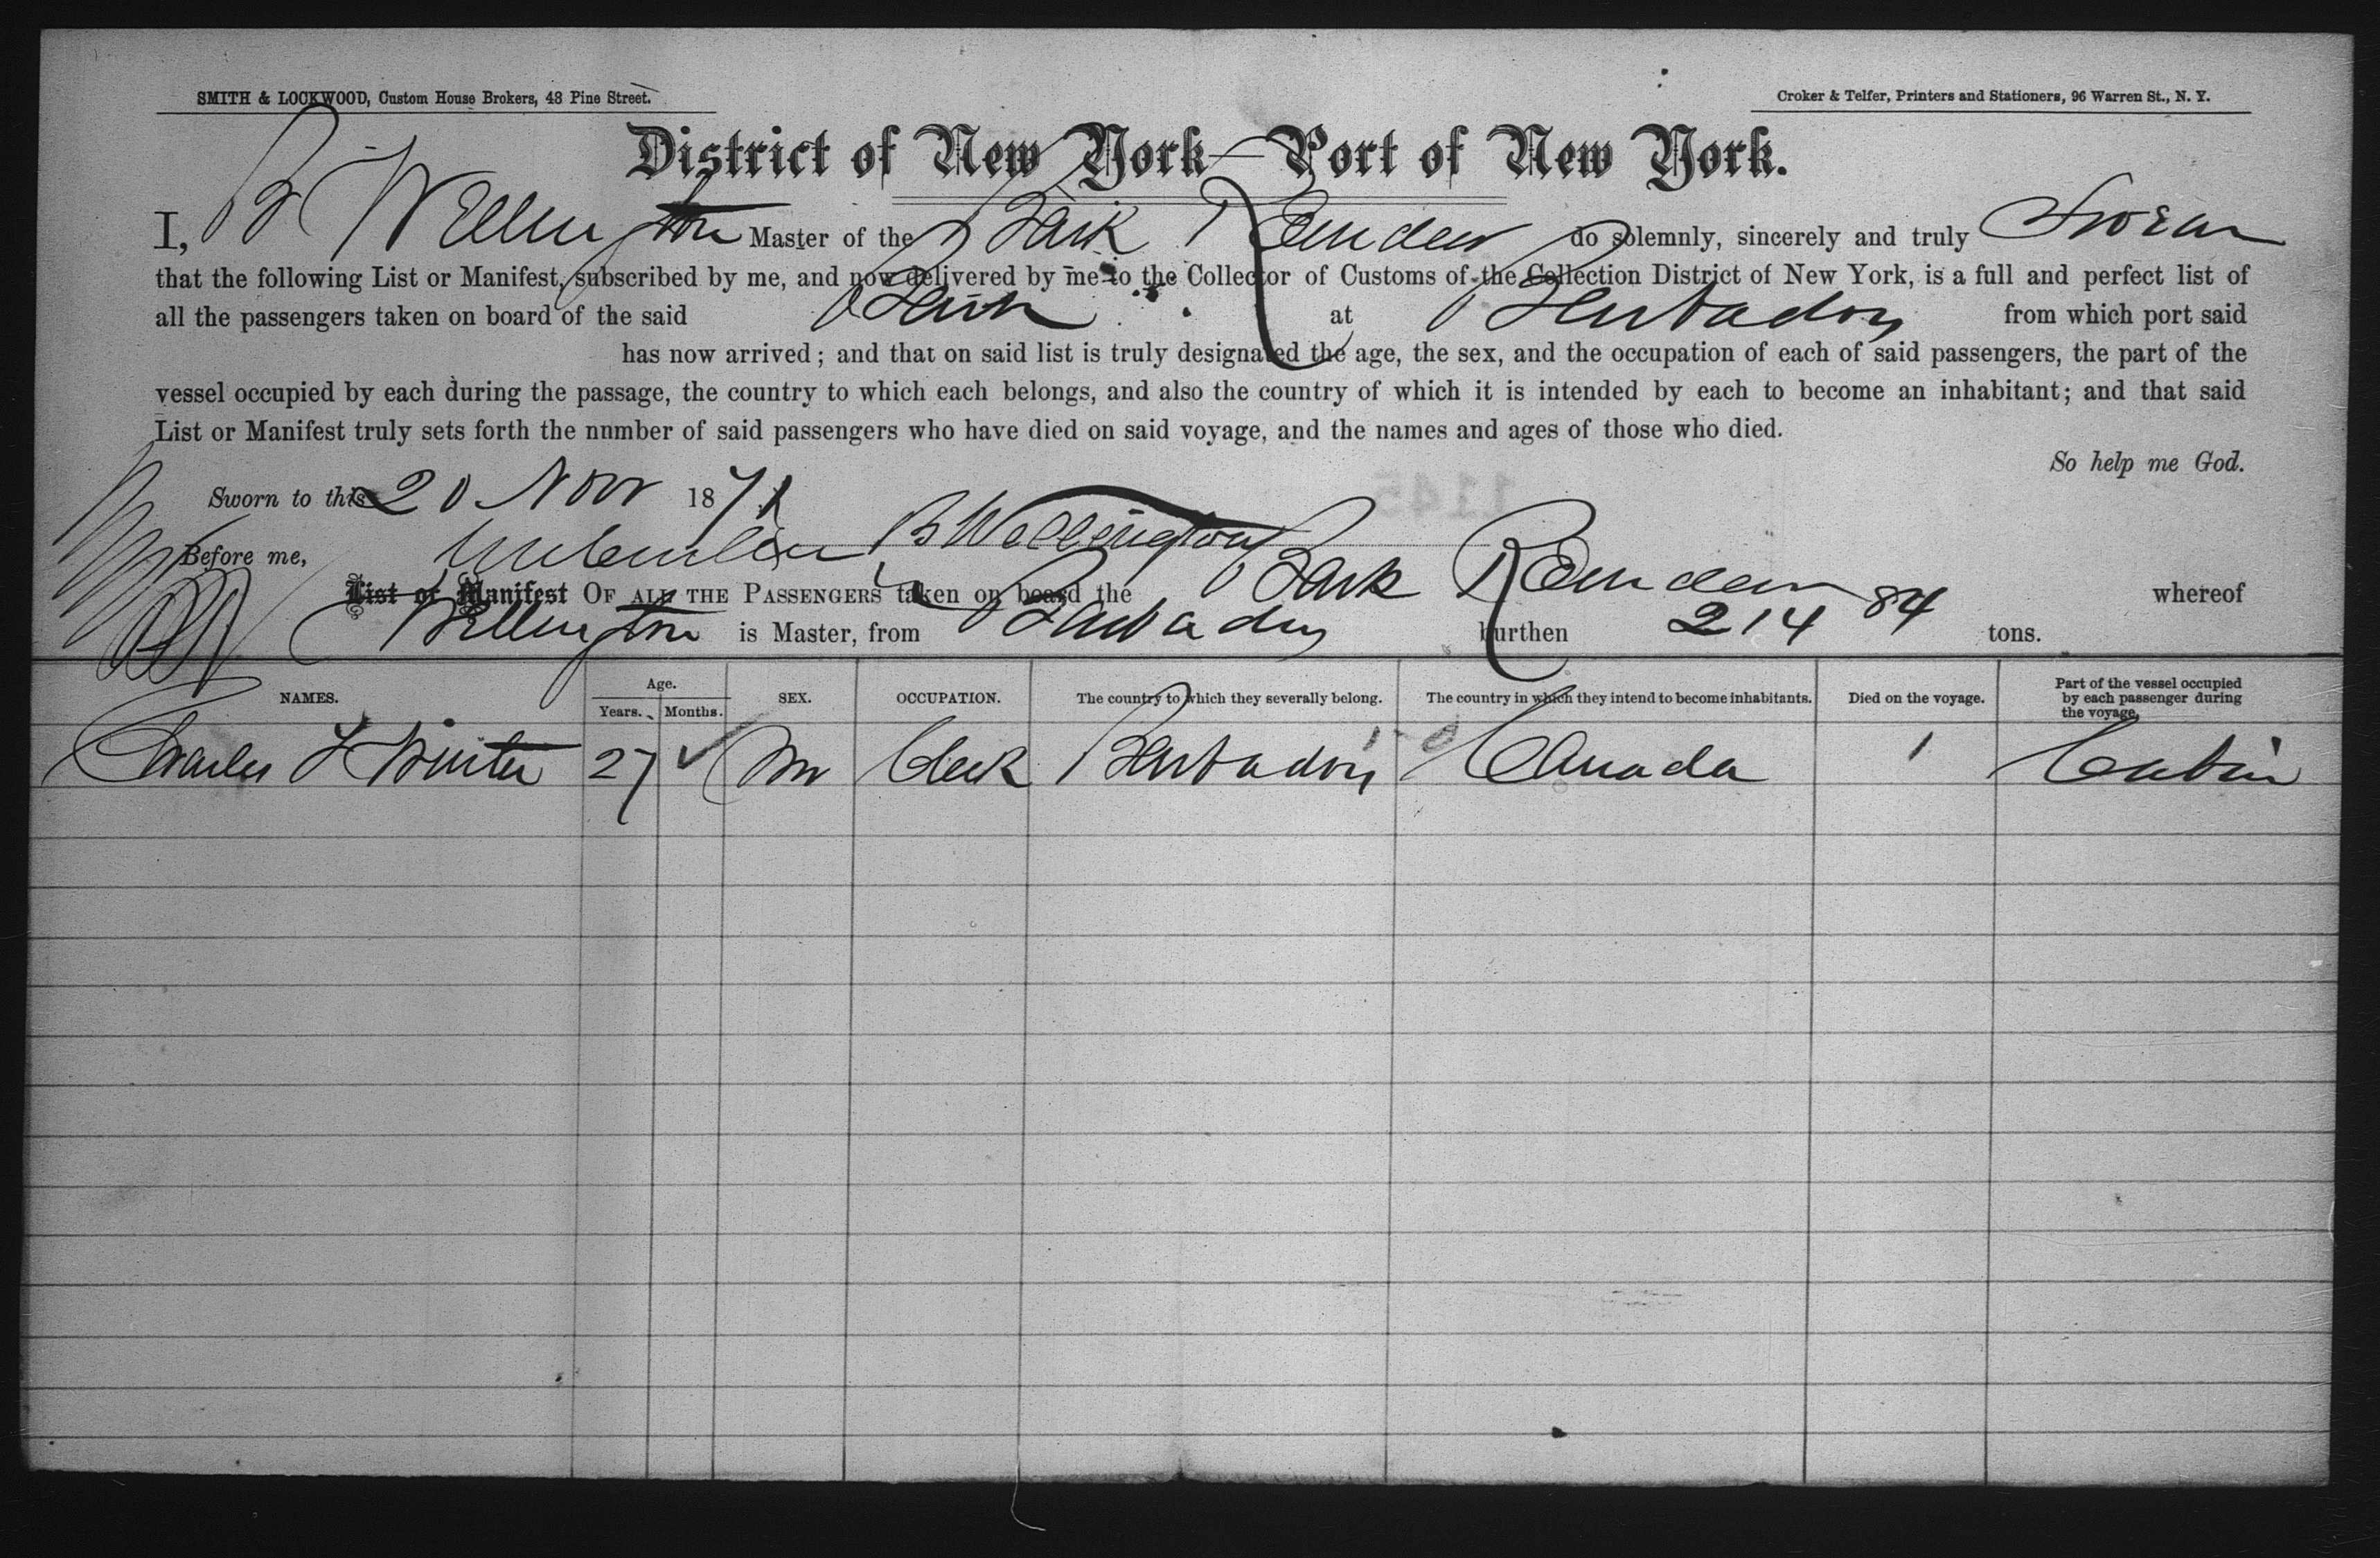 SMITH & LOCKWOOD, Custom House Brokers, 43 Pine Street.
Croker & Telfer, Printers and Stationers, 96 Warren St., N. Y.
District of New York—Port of New York.
I, B Wellington Master of the Bark Reindeer do solemnly, sincerely and truly Swear
that the following List or Manifest, subscribed by me, and now delivered by me to the Collector of Customs of the Collection District of New York, is a full and perfect list of
all the passengers taken on board of the said Bark at Barbados from which port said
has now arrived; and that on said list is truly designated the age, the sex, and the occupation of each of said passengers, the part of the
vessel occupied by each during the passage, the country to which each belongs, and also the country of which it is intended by each to become an inhabitant; and that said
List or Manifest truly sets forth the nnmber of said passengers who have died on said voyage, and the names and ages of those who died.
So help me God.
Sworn to this 20 Nov 1871
Before me, B Wellington
List or Manifest OF ALL THE PASSENGERS taken on board the Bark Reindeer whereof
Wellington is Master, from Barbados burthen 214 84 tons.
NAMES. Age. Years. Months. SEX. OCCUPATION. The country to which they severally belong. The country in which they intend to become inhabitants. Died on the voyage. Part of the vessel occupied by each passenger during the voyage.
Charles Winter 27 M Clerk Barbados Canada Cabin